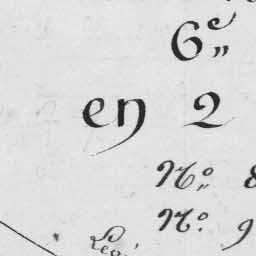 6e
en 2
No. 8
No. 9